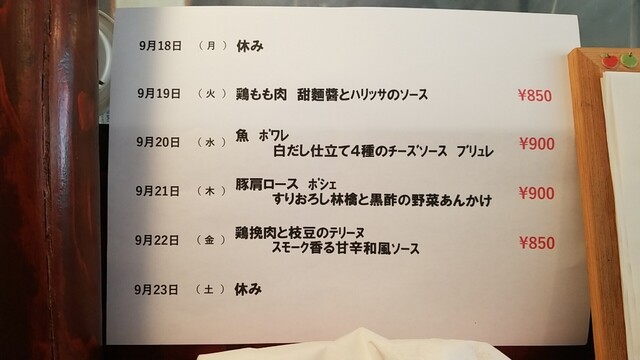 9月18日 (月) 休み
9月19日 (火) 鶏もも肉 甜麵醬とﾊﾘｯｻのソース ¥850
9月20日 (水) 魚 ﾎﾟﾜﾚ
白だし仕立て4種のﾁｰｽﾞソース ﾌﾞﾘｭﾚ ¥900
9月21日 (木) 豚肩ロース ﾎﾟｼｪ
すりおろし林檎と黒酢の野菜あんかけ ¥900
9月22日 (金) 鶏挽肉と枝豆のﾃﾘｰﾇ
ｽﾓｰｸ香る甘辛和風ソース ¥850
9月23日 (土) 休み